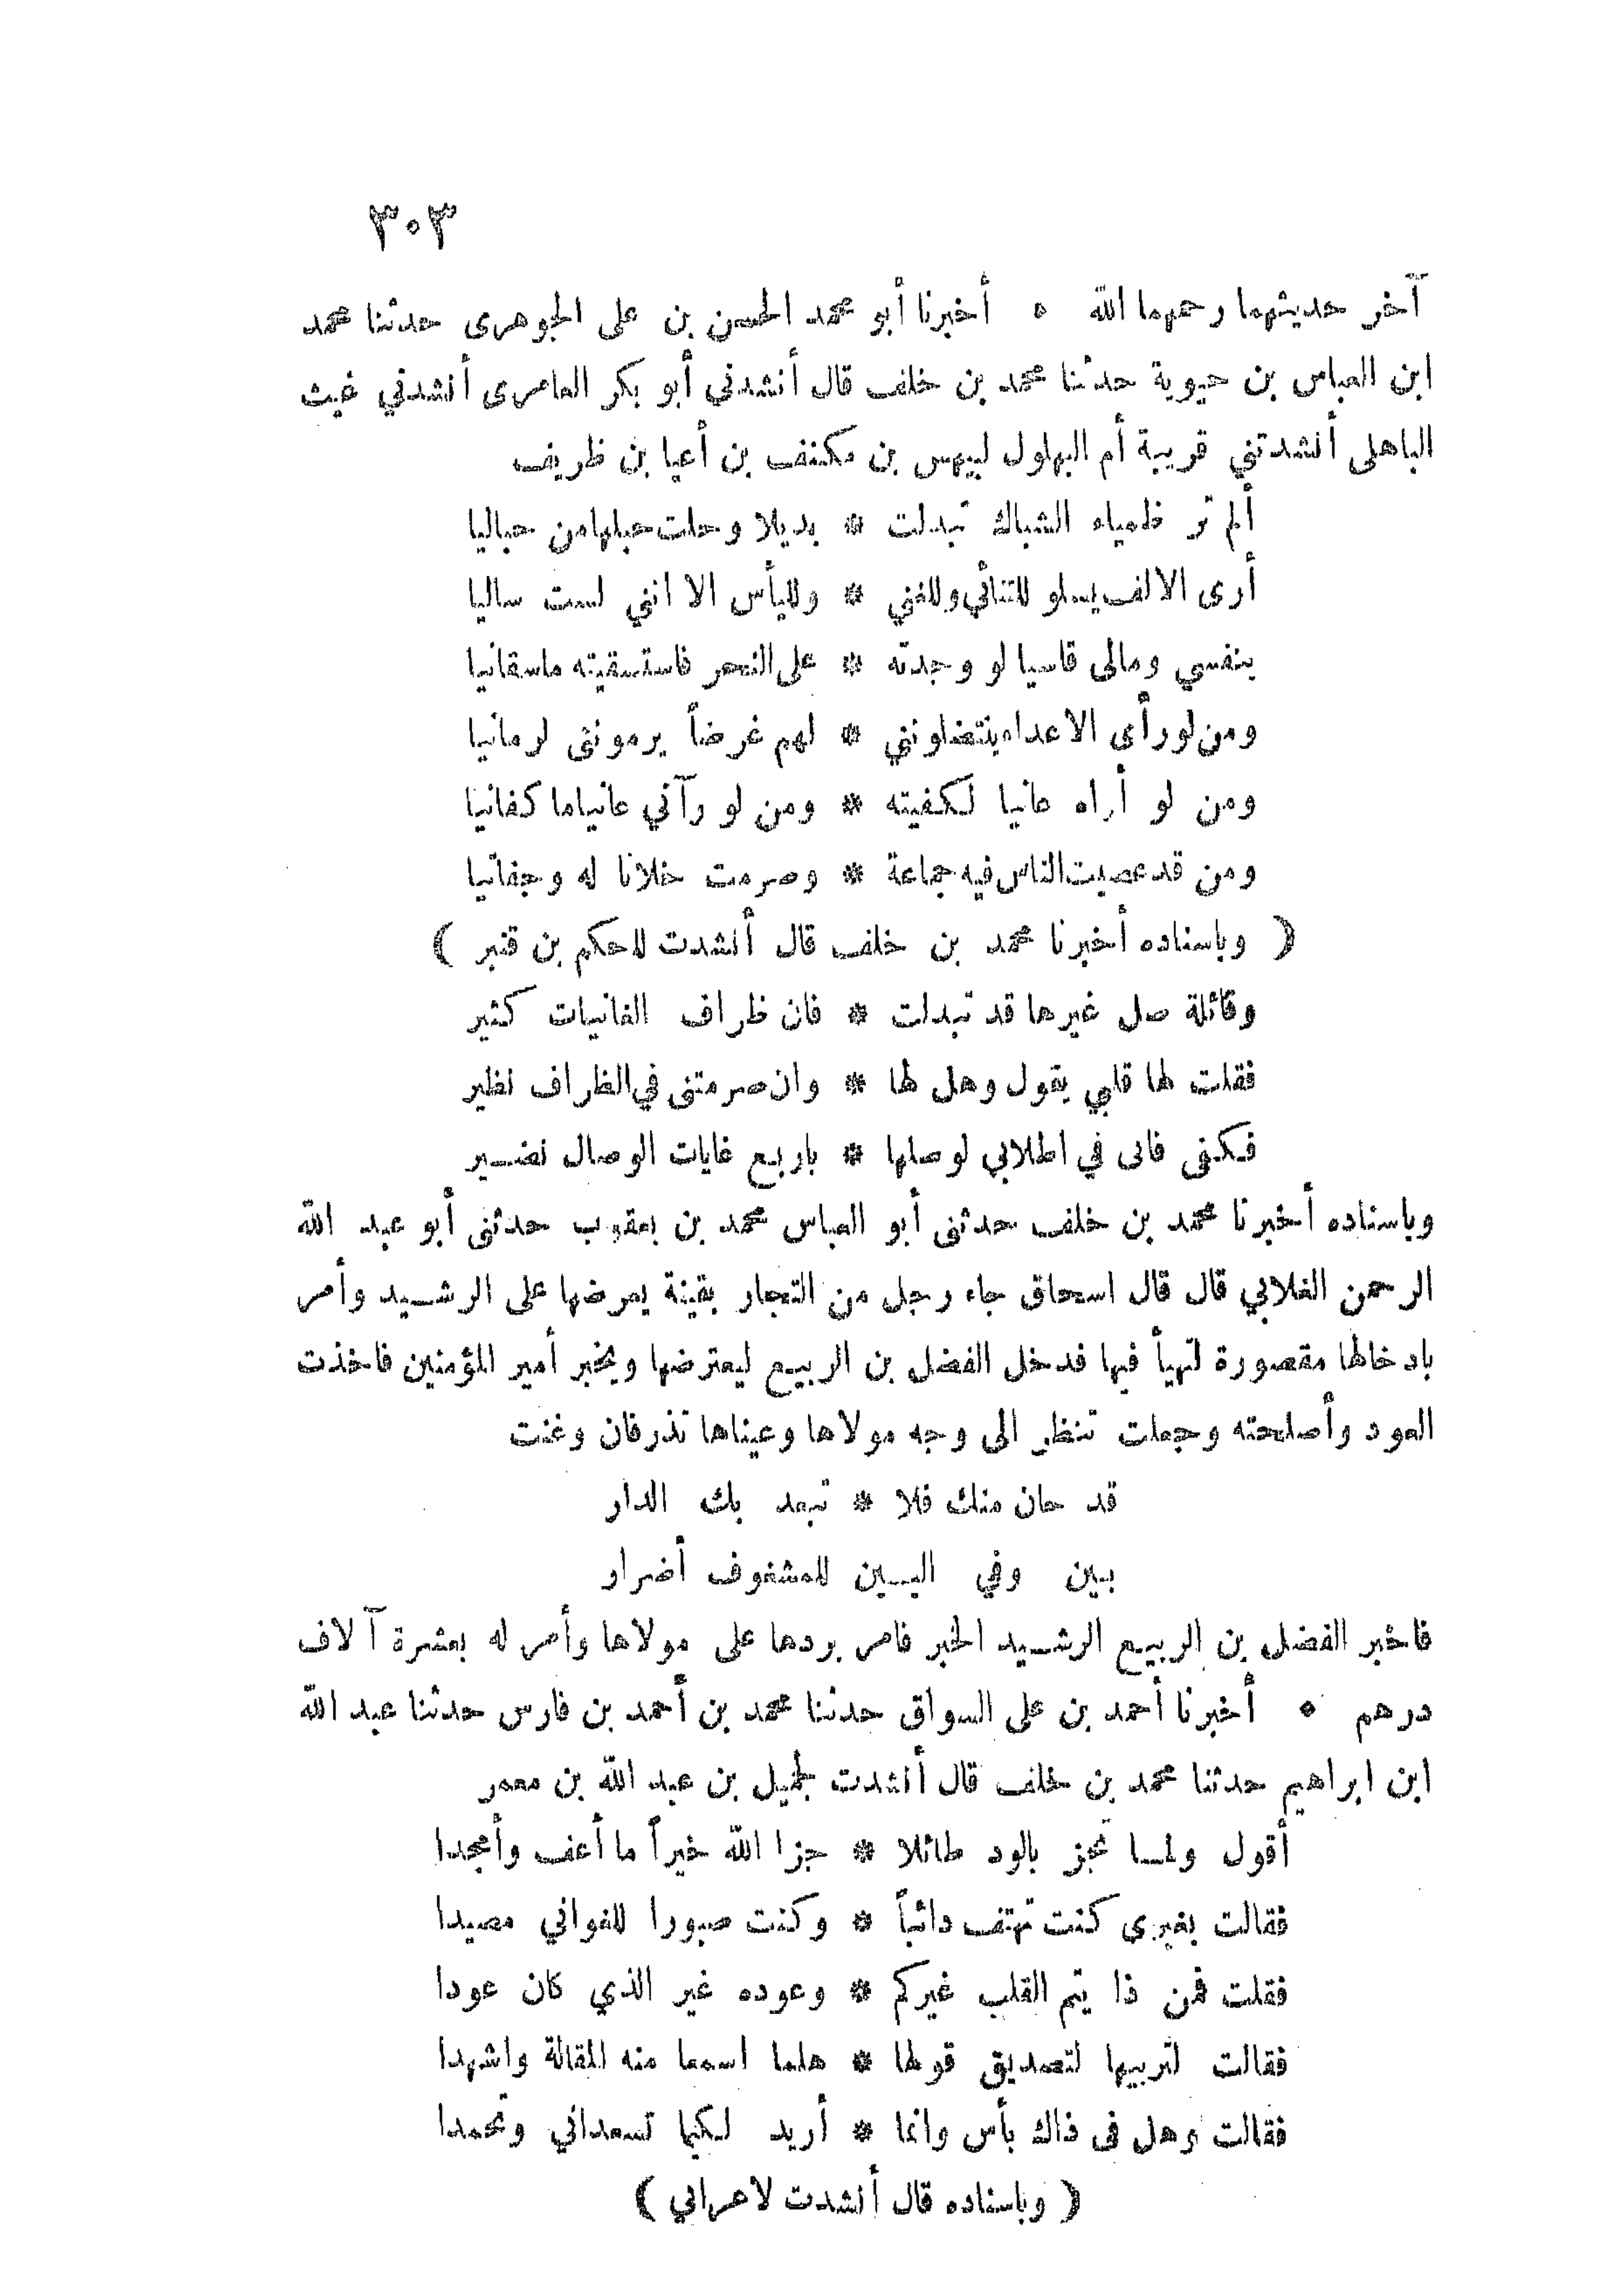 ٣٠٣
آخر حديثهما رحمهما الله ٥ أخبرنا أبو محمد الحسن بن على الجوهرى حدثنا محمد
ابن العباس بن حيوية حدثنا محمد بن خلف قال أنشدني أبو بكر العامرى أنشدني غيث
الباهلى أنشدتني قريبة أم البهلول لبيهس بن مكنف بن أعيا بن ظريف
ألم تر ظمياء الشباك تبدلت * بديلا وحلت حبلها من حباليا
أرى الالف يسلو للتنائي وللغني * ولليأس الا انني لست ساليا
بنفسي ومالى قاسيا لو وجدته * على النحر فاستسقيته ماسقانيا
ومن لو رأى الاعداء ينتضلونني * لهم غرضاً يرمونني لرمانيا
ومن لو أراه عانيا لكفيته * ومن لو رآني عانيا ما كفانيا
ومن قد عصيت الناس فيه جماعة * وصرمت خلانا له وجفانيا
( وباسناده أخبرنا محمد بن خلف قال أنشدت للحكم بن قنبر )
وقائلة صل غيرها قد تبدلت * فان ظراف الغانيات كثير
فقلت لها قلبي يقول وهل لها * وان صرمتنى في الظراف نظير
فكفى فانى في اطلابي لوصلها * باربع غايات الوصال نضير
وباسناده أخبرنا محمد بن خلف حدثنى أبو العباس محمد بن يعقوب حدثنى أبو عبد الله
الرحمن الغلابي قال قال اسحاق جاء رجل من التجار بقينة يعرضها على الرشيد وأمر
بادخالها مقصورة لتهيأ فيها فدخل الفضل بن الربيع ليعترضها ويخبر أمير المؤمنين فاخذت
العود وأصلحته وجعلت تنظر الى وجه مولاها وعيناها تذرفان وغنت
قد حان منك فلا * تبعد بك الدار
بين وفي البين للمشغوف أضرار
فاخبر الفضل بن الربيع الرشيد الخبر فامر بردها على مولاها وأمر له بعشرة آلاف
درهم ٥ أخبرنا أحمد بن على السواق حدثنا محمد بن أحمد بن فارس حدثنا عبد الله
ابن ابراهيم حدثنا محمد بن خلف قال أنشدت لجميل بن عبد الله بن معمر
أقول ولمسا تجز بالود طائلا * جزا الله خيراً ما أعف وأمجدا
فقالت بغيرى كنت تهتف دائباً * وكنت صبورا للغواني مصيدا
فقلت فمن ذا يتم القلب غيركم * وعوده غير الذي كان عودا
فقالت لتربيها لتصديق قولها * هلما اسمعا منه المقالة واشهدا
فقالت وهل فى ذاك بأس وانما * أريد لكيما تسعداني وتحمدا
( وباسناده قال أنشدت لاعرابي )